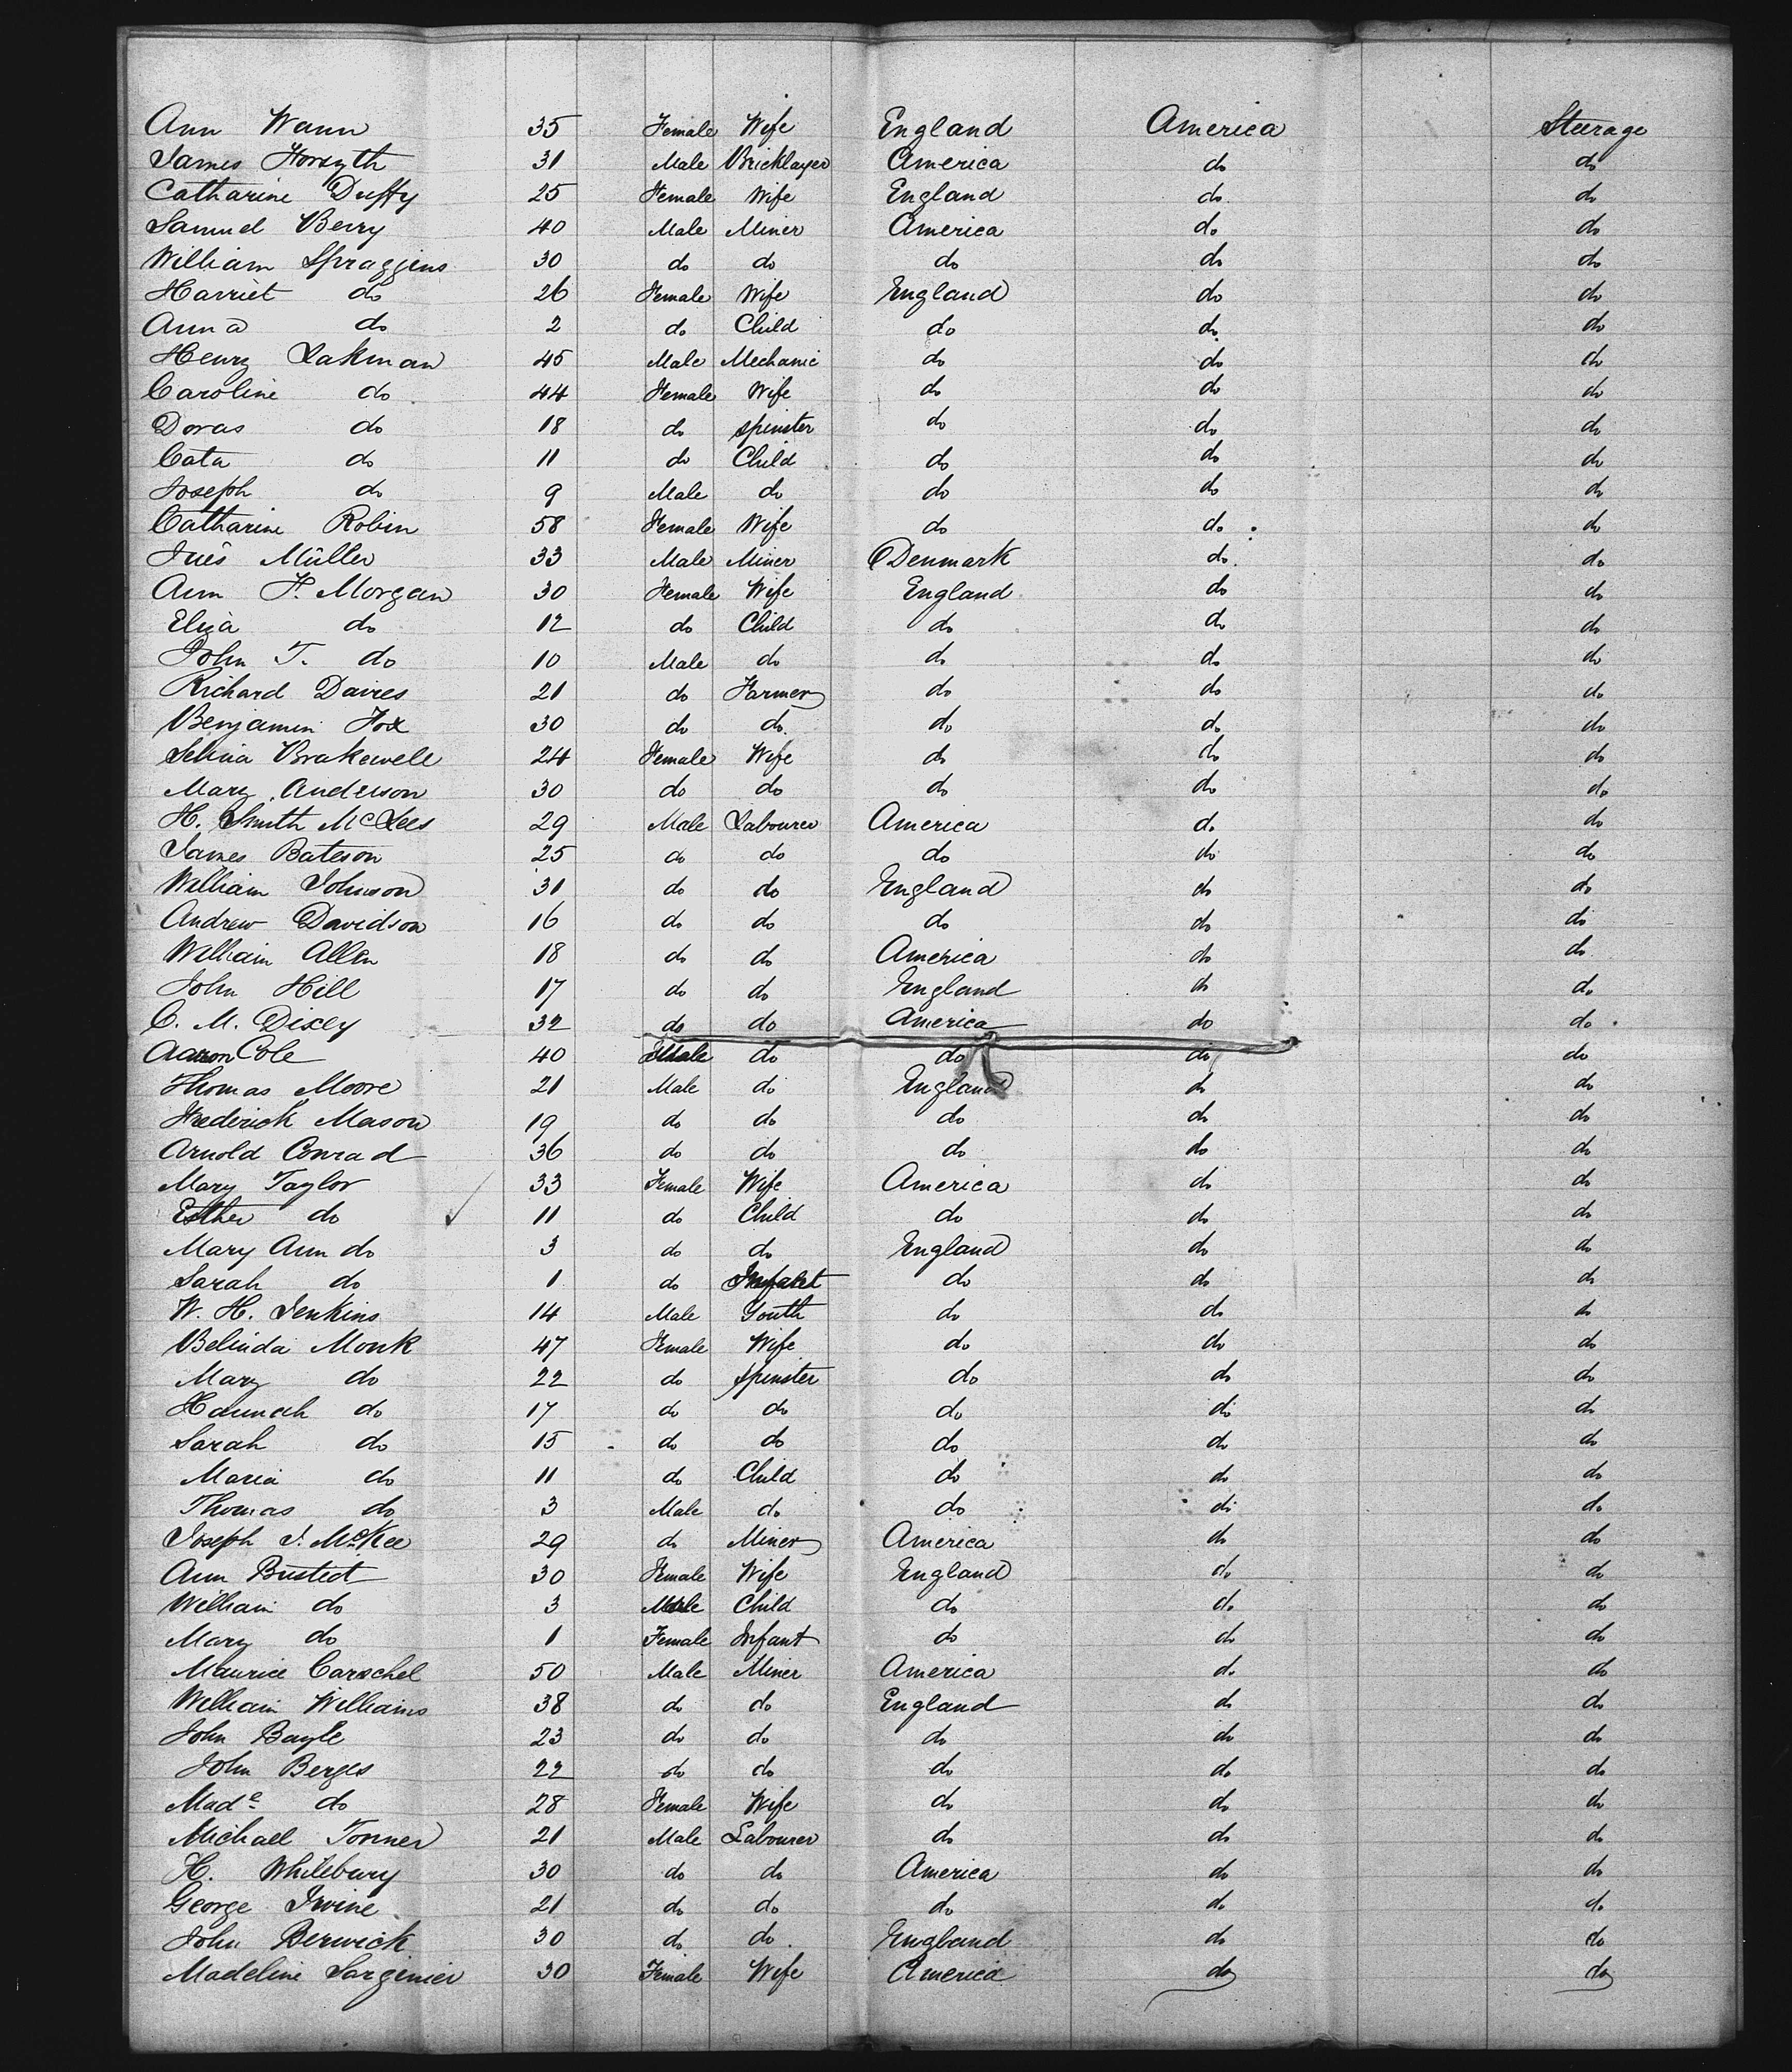 Ann Wann 35 Female Wife England America Steerage
James Forsyth 31 Male Bricklayer America do do
Catharine Duffy 25 Female Wife England do do
Samuel Berry 40 Male Miner America do do
William Spraggins 30 do do do do do
Harriet do 26 Female Wife England do do
Anna do 2 do Child do do do
Henry Lakman 45 Male Mechanic do do do
Caroline do 44 Female Wife do do do
Doras do 18 do spinster do do do
Cata do 11 do Child do do do
Joseph do 9 Male do do do do
Catharine Robin 58 Female Wife do do do
Jués Müller 33 Male Miner Denmark do do
Ann F. Morgan 30 Female Wife England do do
Eliza do 12 do Child do do do
John T. do 10 Male do do do do
Richard Davies 21 do Farmer do do do
Benjamin Fox 30 do do do do do
Selina Brakewell 24 Female Wife do do do
Mary Anderson 30 do do do do do
H. Smith McLees 29 Male Labourer America do do
James Bateson 25 do do do do do
William Johnson 31 do do England do do
Andrew Davidson 16 do do do do do
William Allen 18 do do America do do
John Hill 17 do do England do do
C. M. Dixey 32 do do America do do
Aaron Cole 40 Male do do do do
Thomas Moore 21 Male do England do do
Frederick Mason 19 do do do do do
Arnold Conrad 36 do do do do do
Mary Taylor 33 Female Wife America do do
Esther do 11 do Child do do do
Mary Ann do 3 do do England do do
Sarah do 1 do Infant do do do
W. H. Jenkins 14 Male Youth do do do
Belinda Monk 47 Female Wife do do do
Mary do 22 do spinster do do do
Hannah do 17 do do do do do
Sarah do 15 do do do do do
Maria do 11 do Child do do do
Thomas do 3 Male do do do do
Joseph J. McKee 29 do Miner America do do
Ann Bustect 30 Female Wife England do do
William do 3 Male Child do do do
Mary do 1 Female Infant do do do
Maurice Carschel 50 Male Miner America do do
William Williams 38 do do England do do
John Bayle 23 do do do do do
John Berges 22 do do do do do
Made do 28 Female Wife do do do
Michael Tonner 21 Male Labourer do do do
H. Whitebury 30 do do America do do
George Irvine 21 do do do do do
John Berwick 30 do do England do do
Madeline Sarginier 30 Female Wife America do do